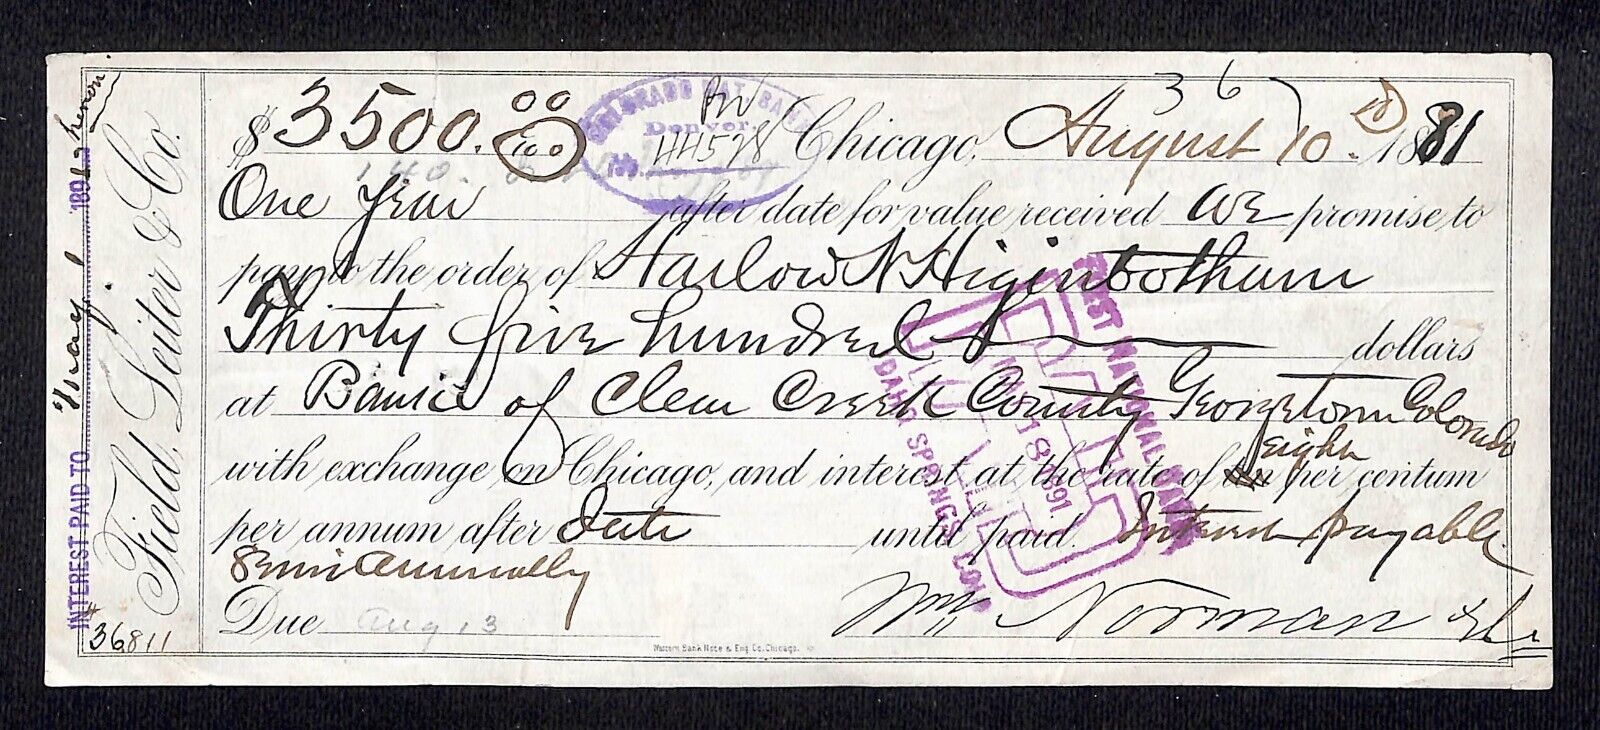 $3500.00/100 Chicago, August 10 1881
One Year after date for value received we promise to
pay to the order of Harlow N Higinbotham
Thirty five hundred dollars
at Bank of Clear Creek County Georgetown Colorado
with exchange on Chicago, and interest at the rate of eight per centum
per annum after date until paid. Interest payable
Semi Annually
Due Aug 13
Wm Norman & Co
Western Bank Note & Eng. Co. Chicago.
Field, Leiter & Co.
INTEREST PAID TO May 1 189
36811
36
44598
COLORADO NAT. BANK
Denver.
No.
FIRST NATIONAL BANK
PAID
18 1891
IDAHO SPRINGS COLO